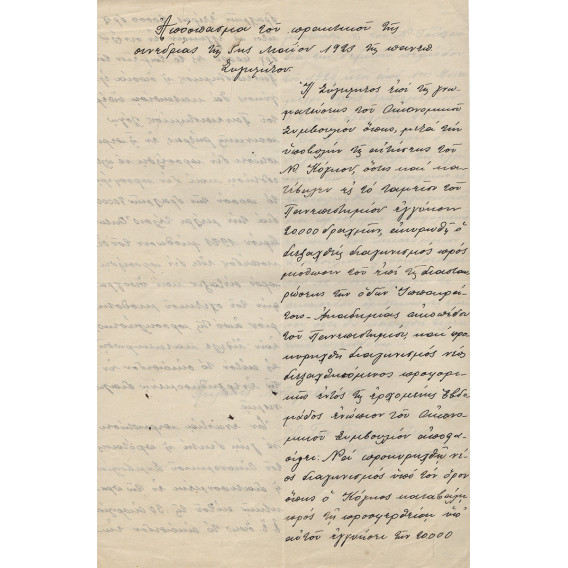 Ἀπόσπασμα τοῦ πρακτικοῦ τῆς
συνεδρίας τῆς 5ης Μαΐου 1925 τῆς πανεπ
Συγκλήτου
Ἡ Σύγκλητος ἐπί τῆς γνω
ματεύσεως τοῦ Οἰκονομικοῦ
Συμβουλίου ὅπως, μετά τήν
ὑποβολήν τῆς αἰτήσεως τοῦ
Ν. Κόγκου, ὅστις καί κα
τέβαλεν εἰς τό ταμεῖον τοῦ
Πανεπιστημίου ἐγγύησιν
20000 δραχμῶν, ἀκυρωθῇ ὁ
διεξαχθείς διαγωνισμός πρός
μίσθωσιν τοῦ ἐπί τῆς διασταυ
ρώσεως τῶν ὁδῶν Ἱπποκρά
τους - Ἀκαδημίας οἰκοπέδου
τοῦ Πανεπιστημίου, καί προ
κηρυχθῇ διαγωνισμός νέος
διεξαχθησόμενος προφορι
κῶς ἐντός τῆς ἐρχομένης ἑβδο
μάδος ἐνώπιον τοῦ Οἰκονο
μικοῦ Συμβουλίου ἀποφα
σίζει: Νά προκηρυχθῇ νέ
ος διαγωνισμός ὑπό τόν ὅρον
ὅπως ὁ Κόγκος καταβάλῃ
πρός τῇ προσφερθείσῃ ὑπ'
αὐτοῦ ἐγγυήσει τῶν 20000